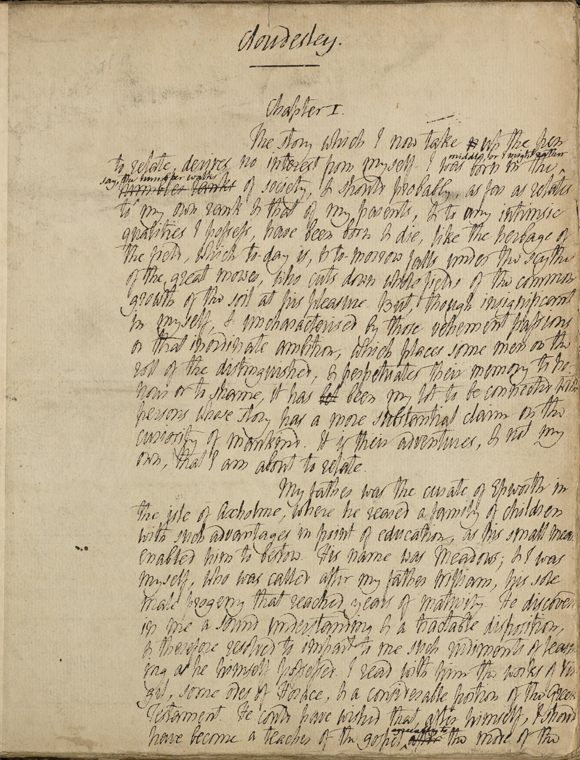 Cloudesley.
Chapter I.
The story which I now take up the pen
to relate, derives no interest from myself. I was born in the
middle, or I might rather
say, the humbler ranks
humbler ranks of society, & should probably, as far as relates
to my own rank & that of my parents, & to any intrinsic
qualities I possess, have been born & die, like the herbage of
the field, which to-day is, & to-morrow falls under the scythe
of the great mower, who cuts down whole fields of the common
growth of the soil at his pleasure. But, though insignificant
in myself, & uncharacterised by those vehement passions
or that inordinate ambition, which places some men on the
roll of the distinguished, & perpetuates their memory to ho-
nour or to shame, it has been my lot to be connected with
persons whose story has a more substantial claim on the
curiosity of mankind. It is their adventures, & not my
own, that I am about to relate.
My father was the curate of Epworth in
the isle of Axholme, where he reared a family of children
with such advantages in point of education, as his small means
enabled him to bestow. His name was Meadows; & I was
myself, who was called after my father William, his sole
male progeny that reached years of maturity. He discovered
in me a sound understanding & a tractable disposition,
& therefore resolved to impart to me such rudiments of learn-
ing as he himself possessed. I read with him the works of Vir-
gil, some odes of Horace, & a considerable portion of the Greek
Testament. He could have wished that, after himself, I should
have become a teacher of the gospel, the more of the